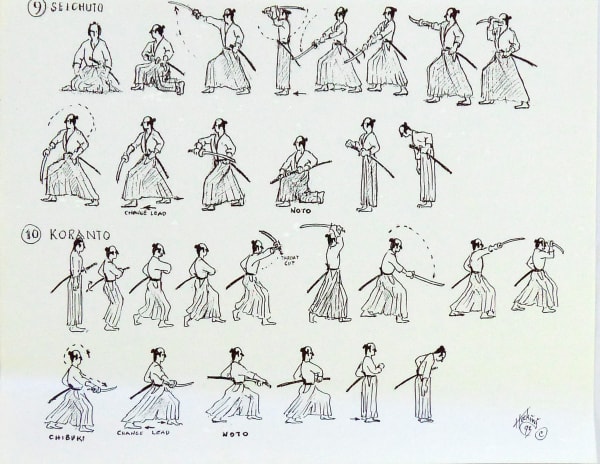 9 SEICHUTO
CHANGE LEAD
NOTO
10 KORANTO
THROAT CUT
CHIBUKI
CHANGE LEAD
NOTO
©